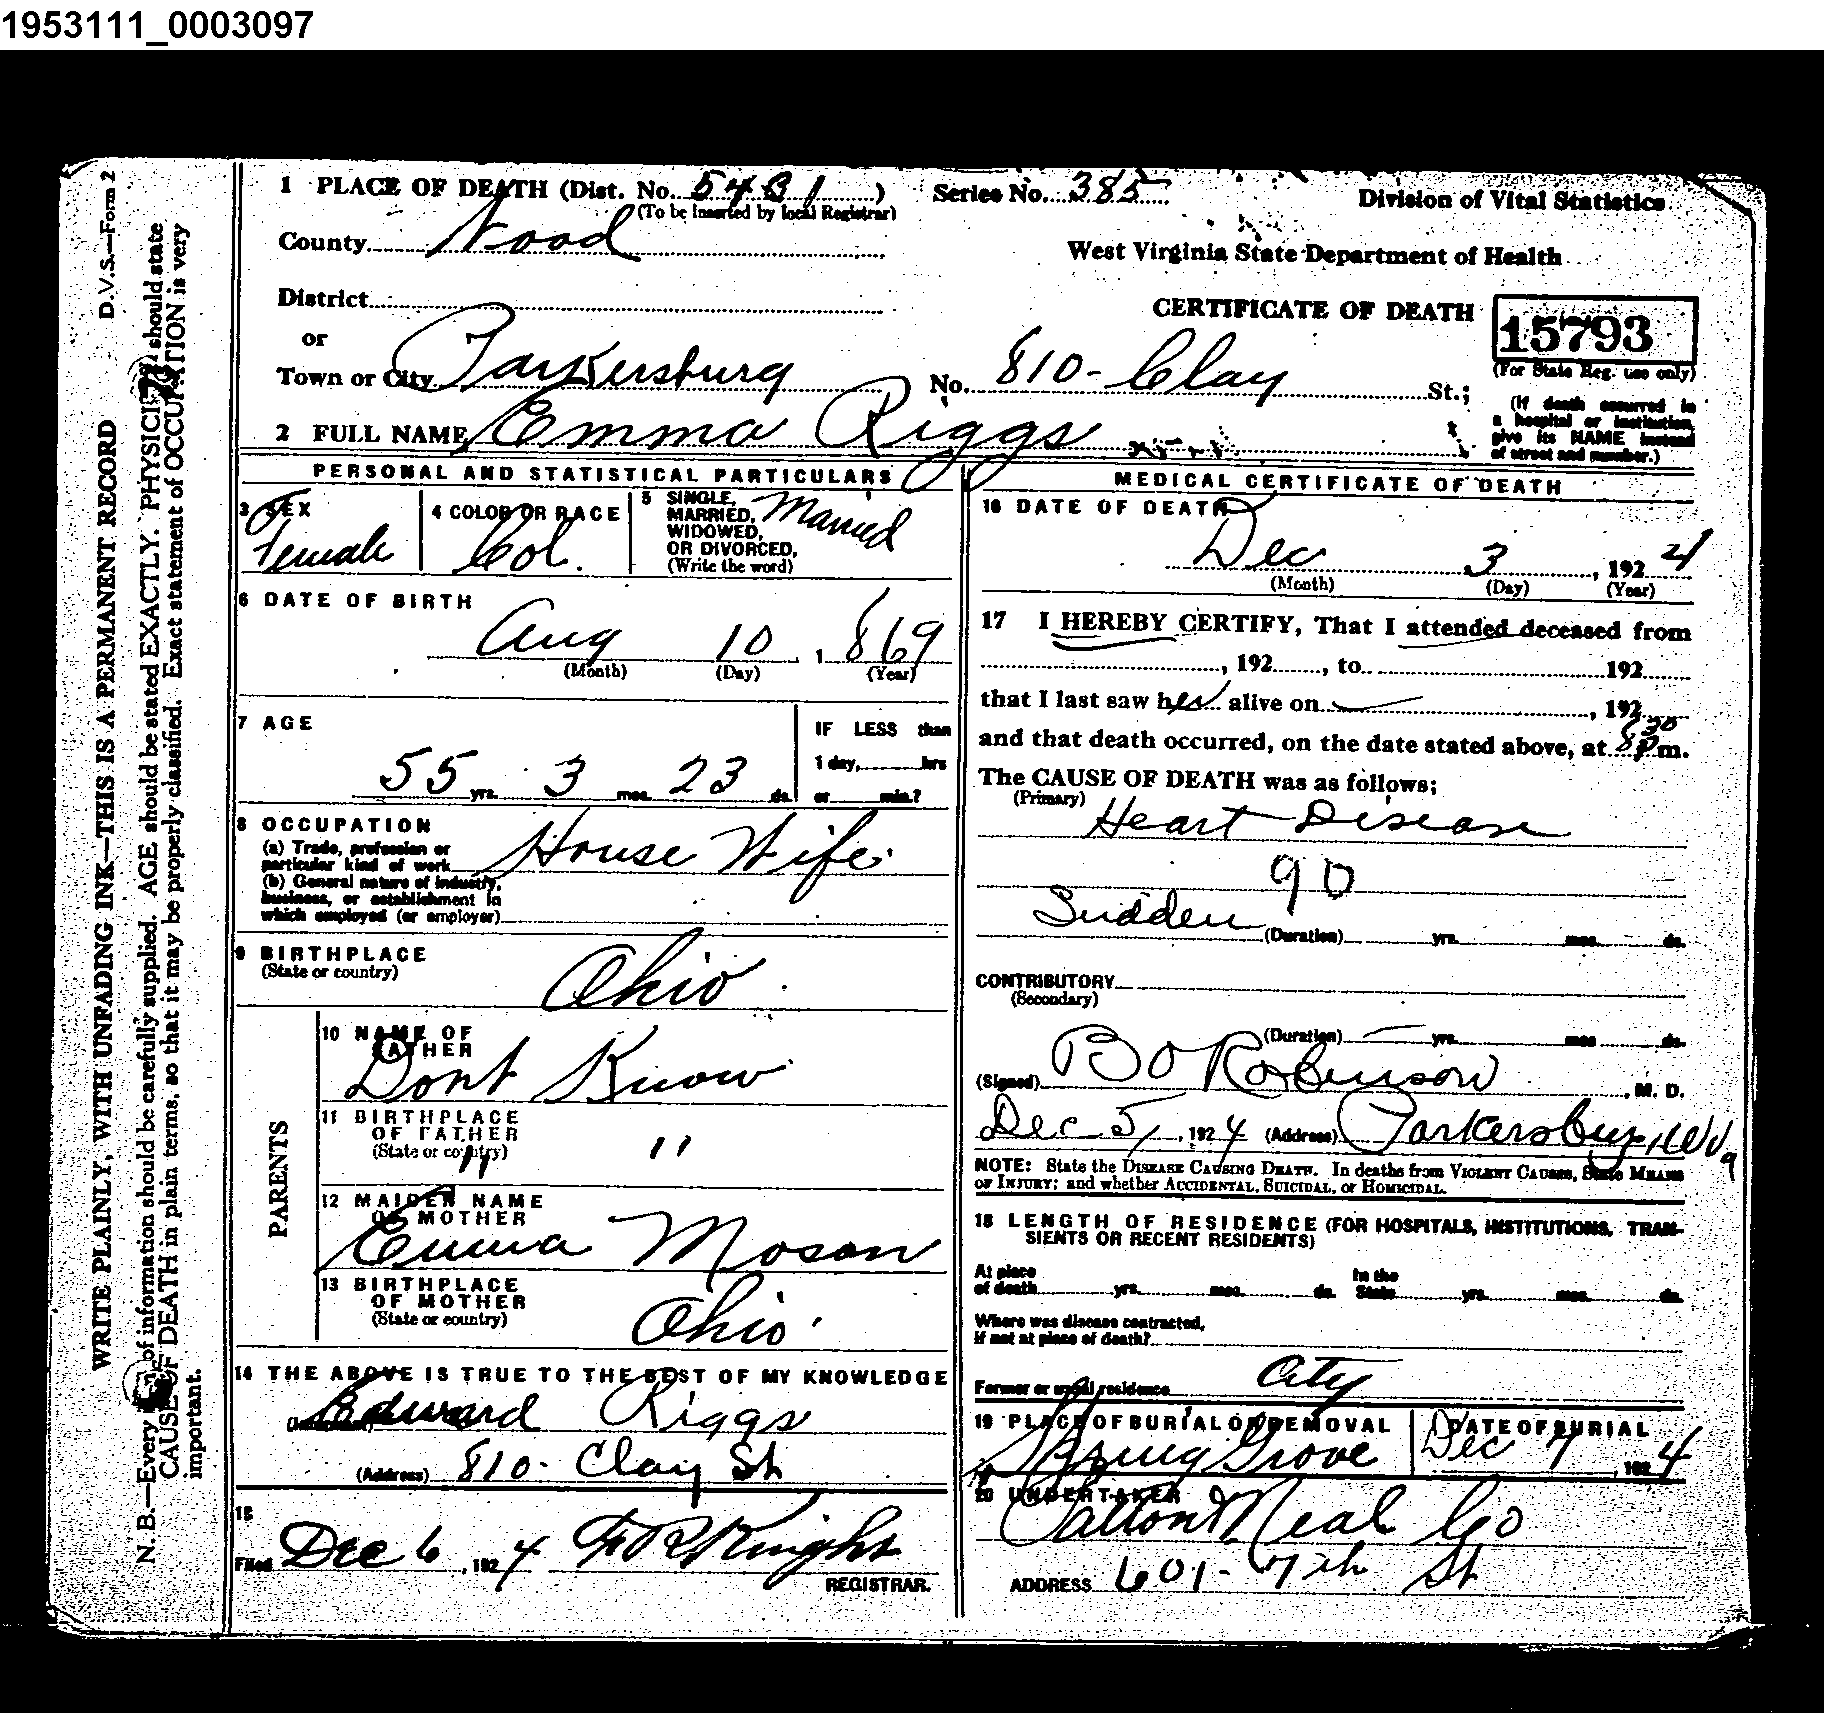 1953111_0003097
D.V.S.—Form 2
WRITE PLAINLY, WITH UNFADING INK—THIS IS A PERMANENT RECORD
N. B.—Every of information should be carefully supplied. AGE should be stated EXACTLY. PHYSICI should state
CAUSE OF DEATH in plain terms, so that it may be properly classified. Exact statement of OCCUPATION is very
important.
1 PLACE OF DEATH (Dist. No. 5431)
(To be inserted by local Registrar)
Series No. 385
Division of Vital Statistics
County Wood
West Virginia State Department of Health
District
CERTIFICATE OF DEATH
15793
(For State Reg. use only)
or
Town or City Parkersburg No. 810- Clay St.;
(If death occurred in
a hospital or institution,
give its NAME instead
of street and number.)
2 FULL NAME Emma Riggs
PERSONAL AND STATISTICAL PARTICULARS
3 SEX
Female
4 COLOR OR RACE
Col.
5 SINGLE,
MARRIED,
WIDOWED,
OR DIVORCED,
(Write the word)
Married
6 DATE OF BIRTH
Aug 10, 1869
(Month) (Day) (Year)
7 AGE
55 yrs. 3 mos. 23 ds.
IF LESS than
1 day, hrs
or min.?
8 OCCUPATION
(a) Trade, profession or
particular kind of work House Wife
(b) General nature of industry,
business, or establishment in
which employed (or employer)
9 BIRTHPLACE
(State or country)
Ohio
PARENTS
10 NAME OF
FATHER
Dont Know
11 BIRTHPLACE
OF FATHER
(State or country)
" "
12 MAIDEN NAME
OF MOTHER
Emma Moson
13 BIRTHPLACE
OF MOTHER
(State or country)
Ohio
14 THE ABOVE IS TRUE TO THE BEST OF MY KNOWLEDGE
(Informant) Edward Riggs
(Address) 810- Clay St
15
Filed Dec 6, 1924 F R Knight
REGISTRAR.
MEDICAL CERTIFICATE OF DEATH
16 DATE OF DEATH
Dec 3, 1924
(Month) (Day) (Year)
17 I HEREBY CERTIFY, That I attended deceased from
, 192 , to 192
that I last saw her alive on , 192
and that death occurred, on the date stated above, at 8 30 P m.
The CAUSE OF DEATH was as follows;
(Primary)
Heart Disease
90
Sudden
(Duration) yrs. mos. ds.
CONTRIBUTORY
(Secondary)
(Duration) yrs. mos ds.
(Signed) B O Robinson, M. D.
Dec 5, 1924 (Address) Parkersburg, W Va
NOTE: State the DISEASE CAUSING DEATH. In deaths from VIOLENT CAUSES, State MEANS
OF INJURY; and whether ACCIDENTAL, SUICIDAL, or HOMICIDAL.
18 LENGTH OF RESIDENCE (FOR HOSPITALS, INSTITUTIONS, TRAN-
SIENTS OR RECENT RESIDENTS)
At place
of death yrs. mos. ds.
In the
State yrs. mos. ds.
Where was disease contracted,
if not at place of death?
Former or usual residence City
19 PLACE OF BURIAL OR REMOVAL
Spring Grove
DATE OF BURIAL
Dec 7, 1924
20 UNDERTAKER
Patton Neal Co
ADDRESS 601- 7th St